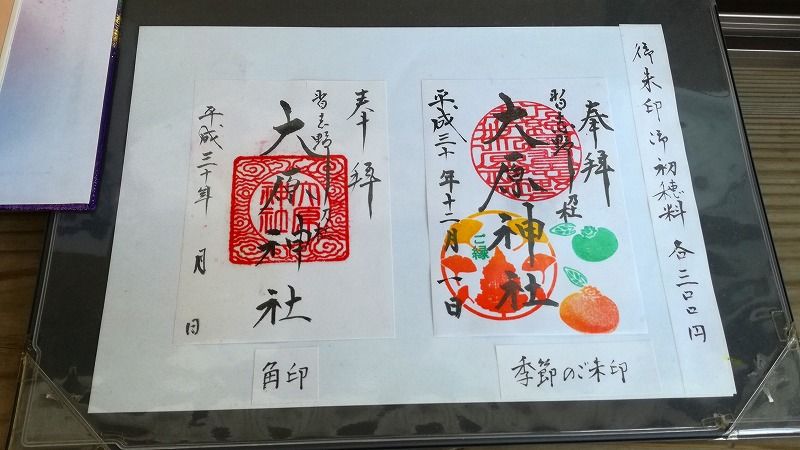 御朱印御初穂料 各三〇〇円
奉拝
習志野
大原神社
平成三十年十二月一日
ご縁
季節のご朱印
奉拝
習志野
大原神社
平成三十年 月 日
角印